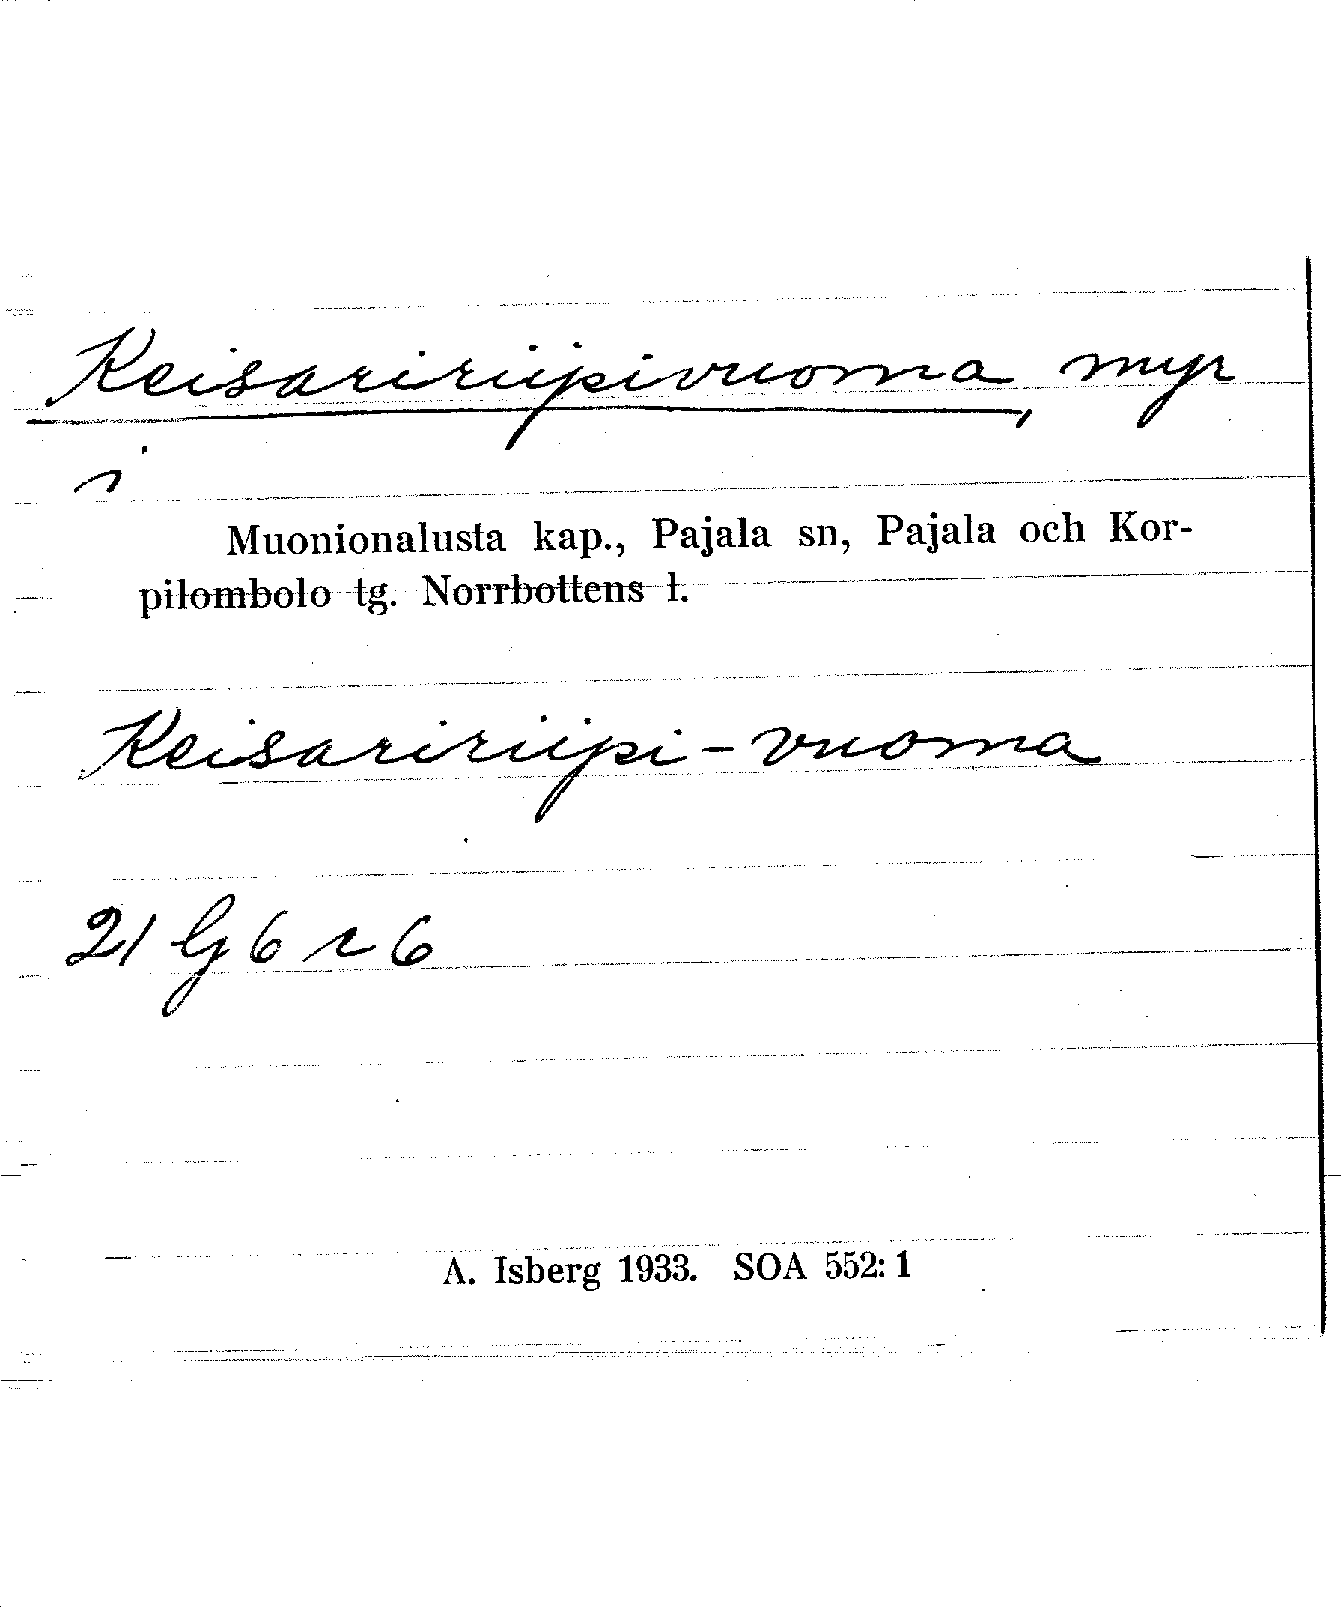 Keisaririipivuoma, myr
i
Muonionalusta kap., Pajala sn, Pajala och Kor-
pilombolo tg. Norrbottens l.
Keisaririipi-vuoma
21 G 6 r 6
A. Isberg 1933. SOA 552:1